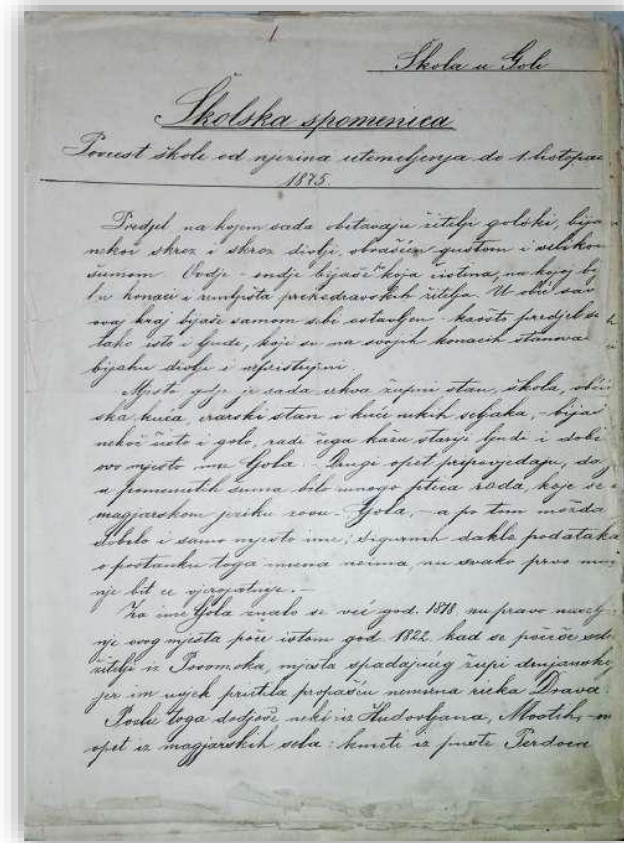 1
Škola u Goli
Školska spomenica
Poviest škole od njezina utemeljenja do 1 listopa
1875.
Predjel, na kojem sada obitavaju žitelji golski, bija
nekoč skroz i skroz divlji, obrašćen gustom i veliko
šumom. Ovdje-ondje bijaše koja čistina, na kojoj bi
konaci i zemljišta prekodravskih žitelja. U obće sav
ovaj kraj bijaše samom sebi ostavljen kaošto predjel
tako isto i ljudi, koji su na svojih konacih stanova
bijahu divlji i
Mjesto gdje je sada crkva župni stan, škola, obći
ska kuća, erarski stan i kuće nekih seljaka, - bijaš
nekoč čisto i golo, radi čega kažu stariji ljudi i dobi
ovo mjesto ime Gola. - Drugi opet pripoviedaju, da
u pomenutih šuma bilo mnogo ptica roda, koje se
magjarskom jeziku zovu - Gola, - a po tom možda
dobilo i samo mjesto ime; sigurnih dakle podataka
o postanku toga imena neima, nu svako prvo mni
nje bit će vjerojatnije. -
Za ime Gola znalo se već god. 1818, nu pravo naselj
nje ovog mjesta poče istom god. 1822. kad se počeše
žitelji iz mjesta spadajućeg župi drnjanskoj
jer im uvjek pritila propašću nemirna rieka Drava.
Posle toga dodjoše neki iz Hudovljana,
opet iz magjarskih sela: kmeti iz puste